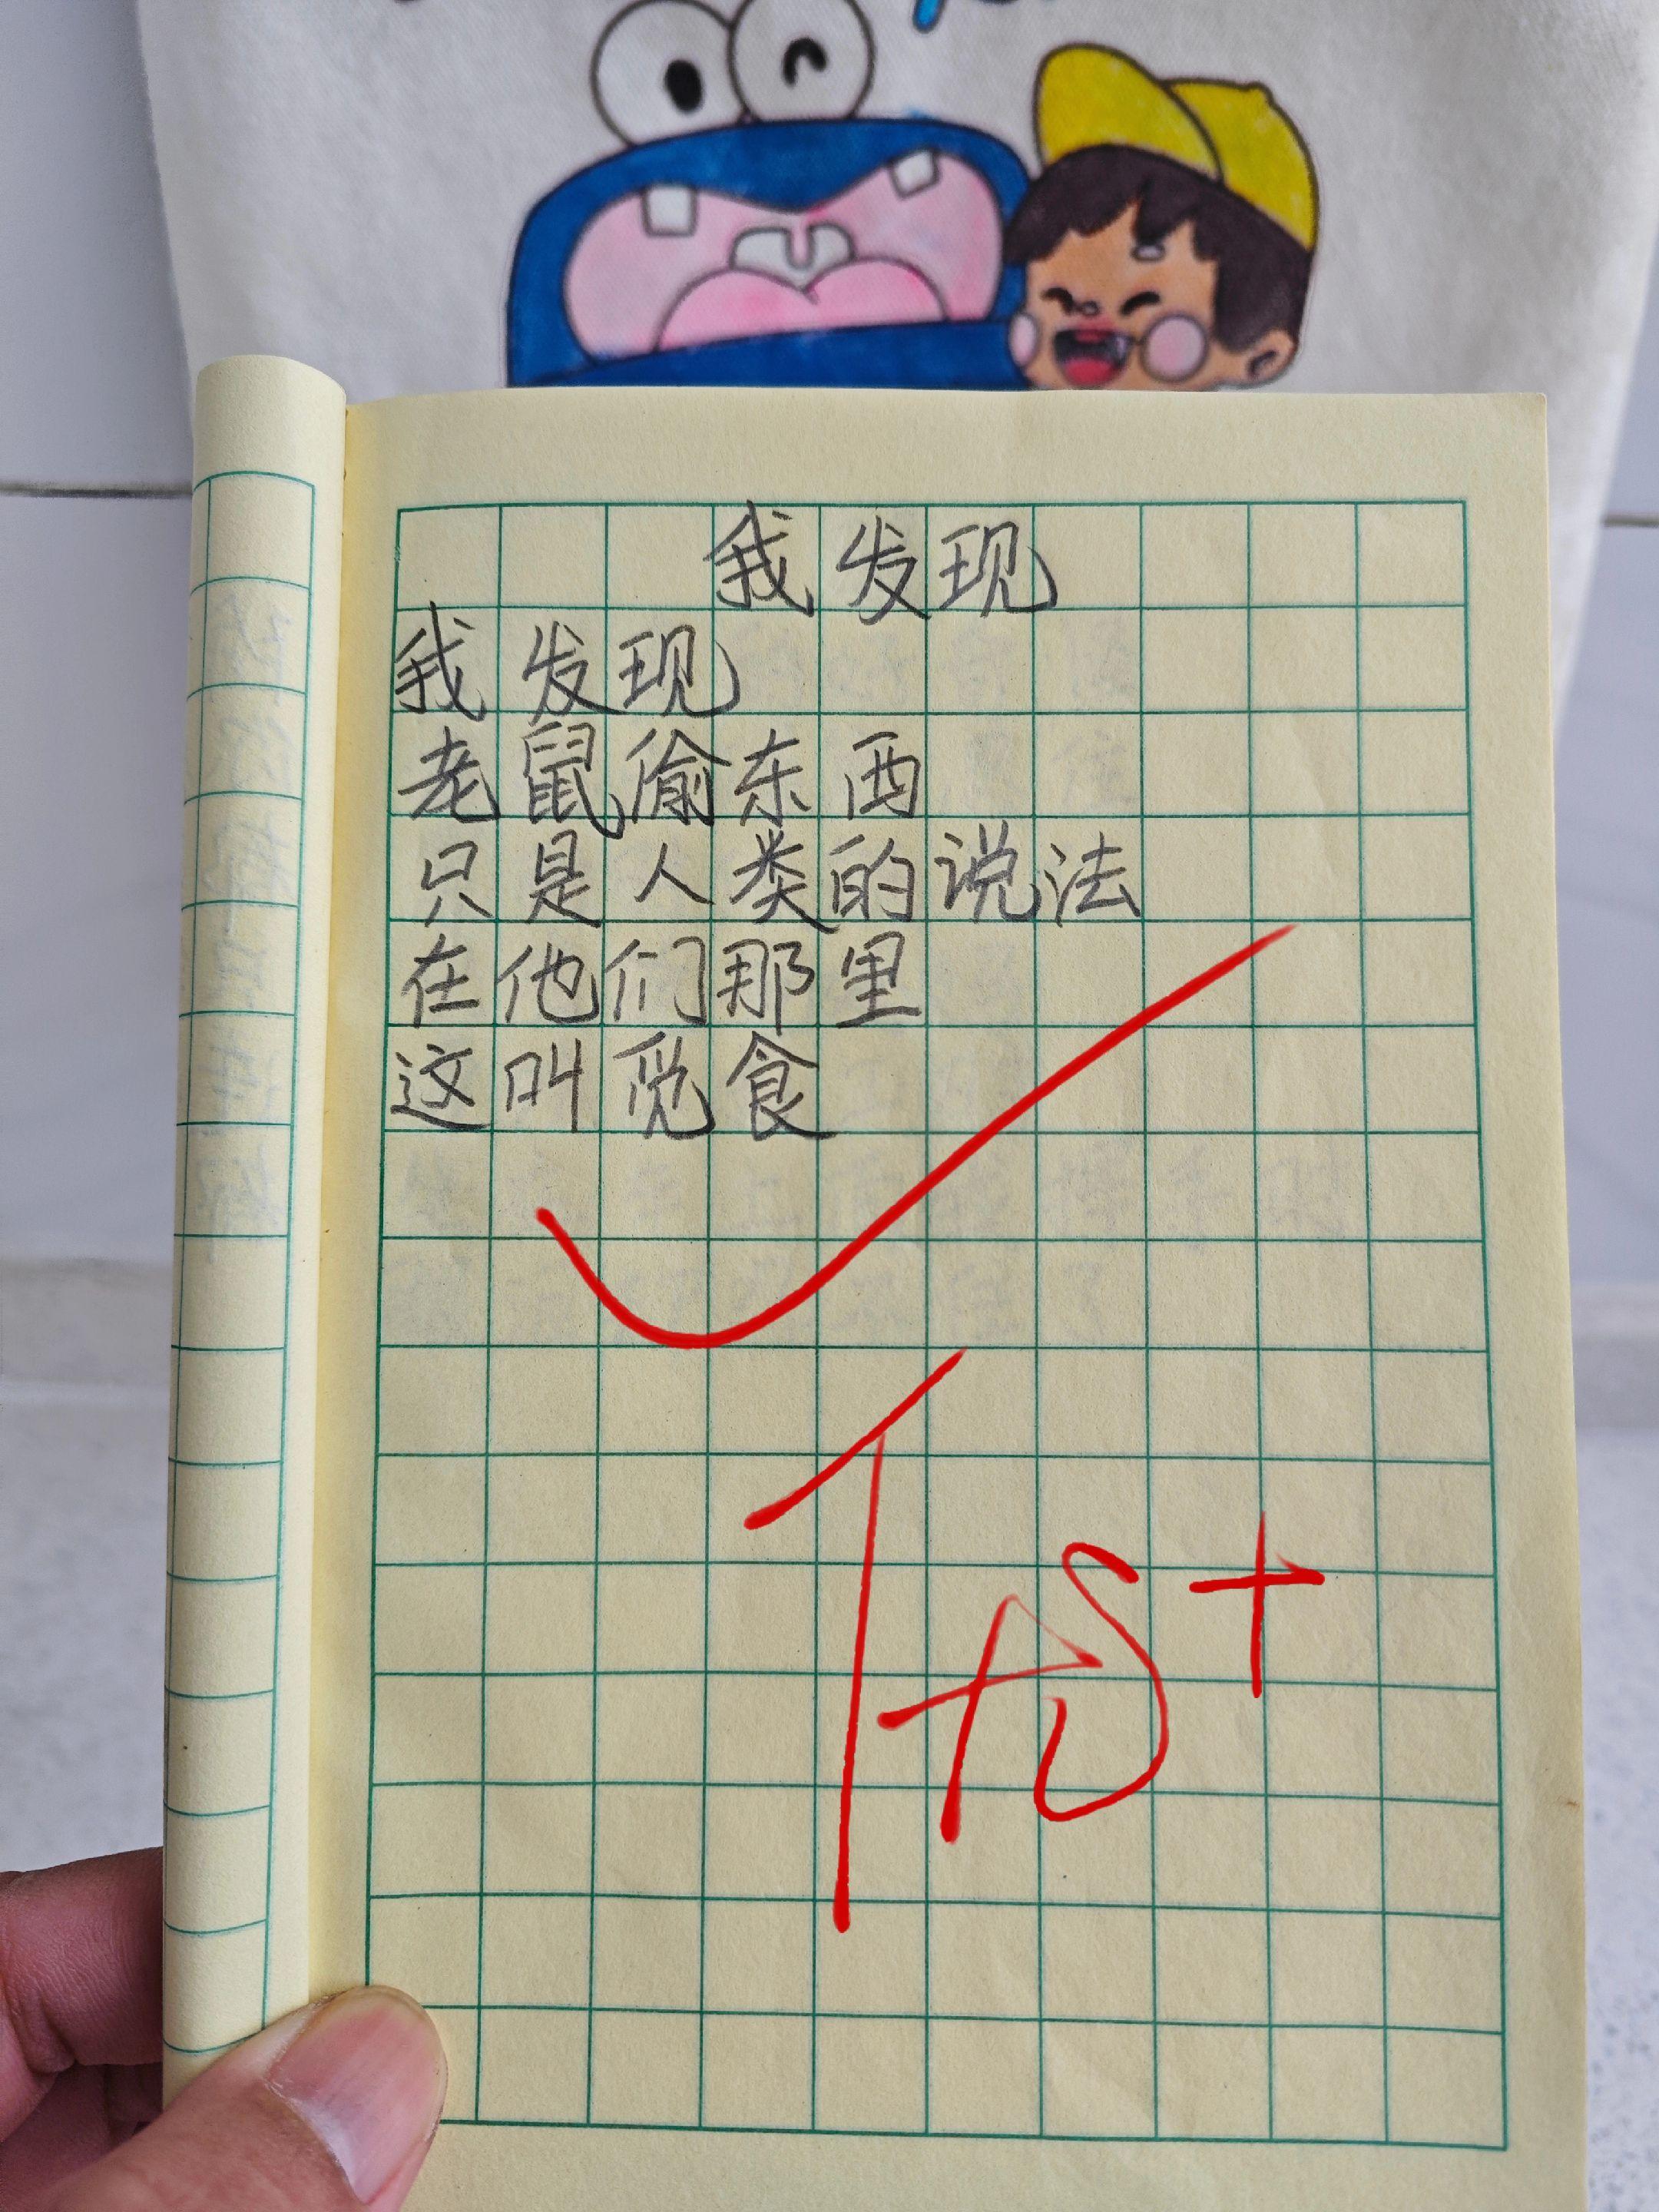 我发现
我发现
老鼠偷东西
只是人类的说法
在他们那里
这叫觅食